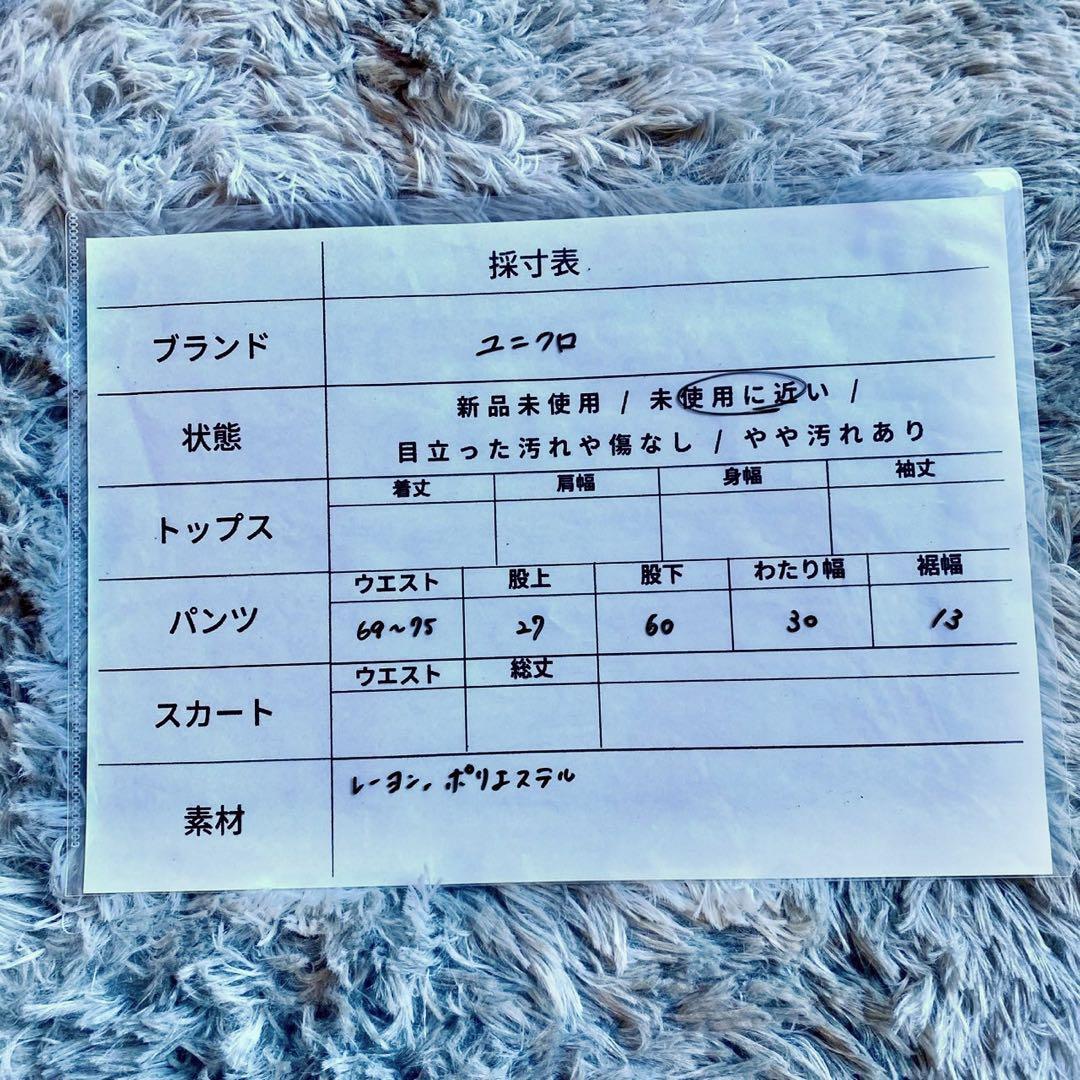 採寸表
ブランド ユニクロ
状態 新品未使用 / 未使用に近い /
目立った汚れや傷なし / やや汚れあり
トップス 着丈 肩幅 身幅 袖丈
パンツ ウエスト 股上 股下 わたり幅 裾幅
69~75 27 60 30 13
スカート ウエスト 総丈
素材 レーヨン、ポリエステル